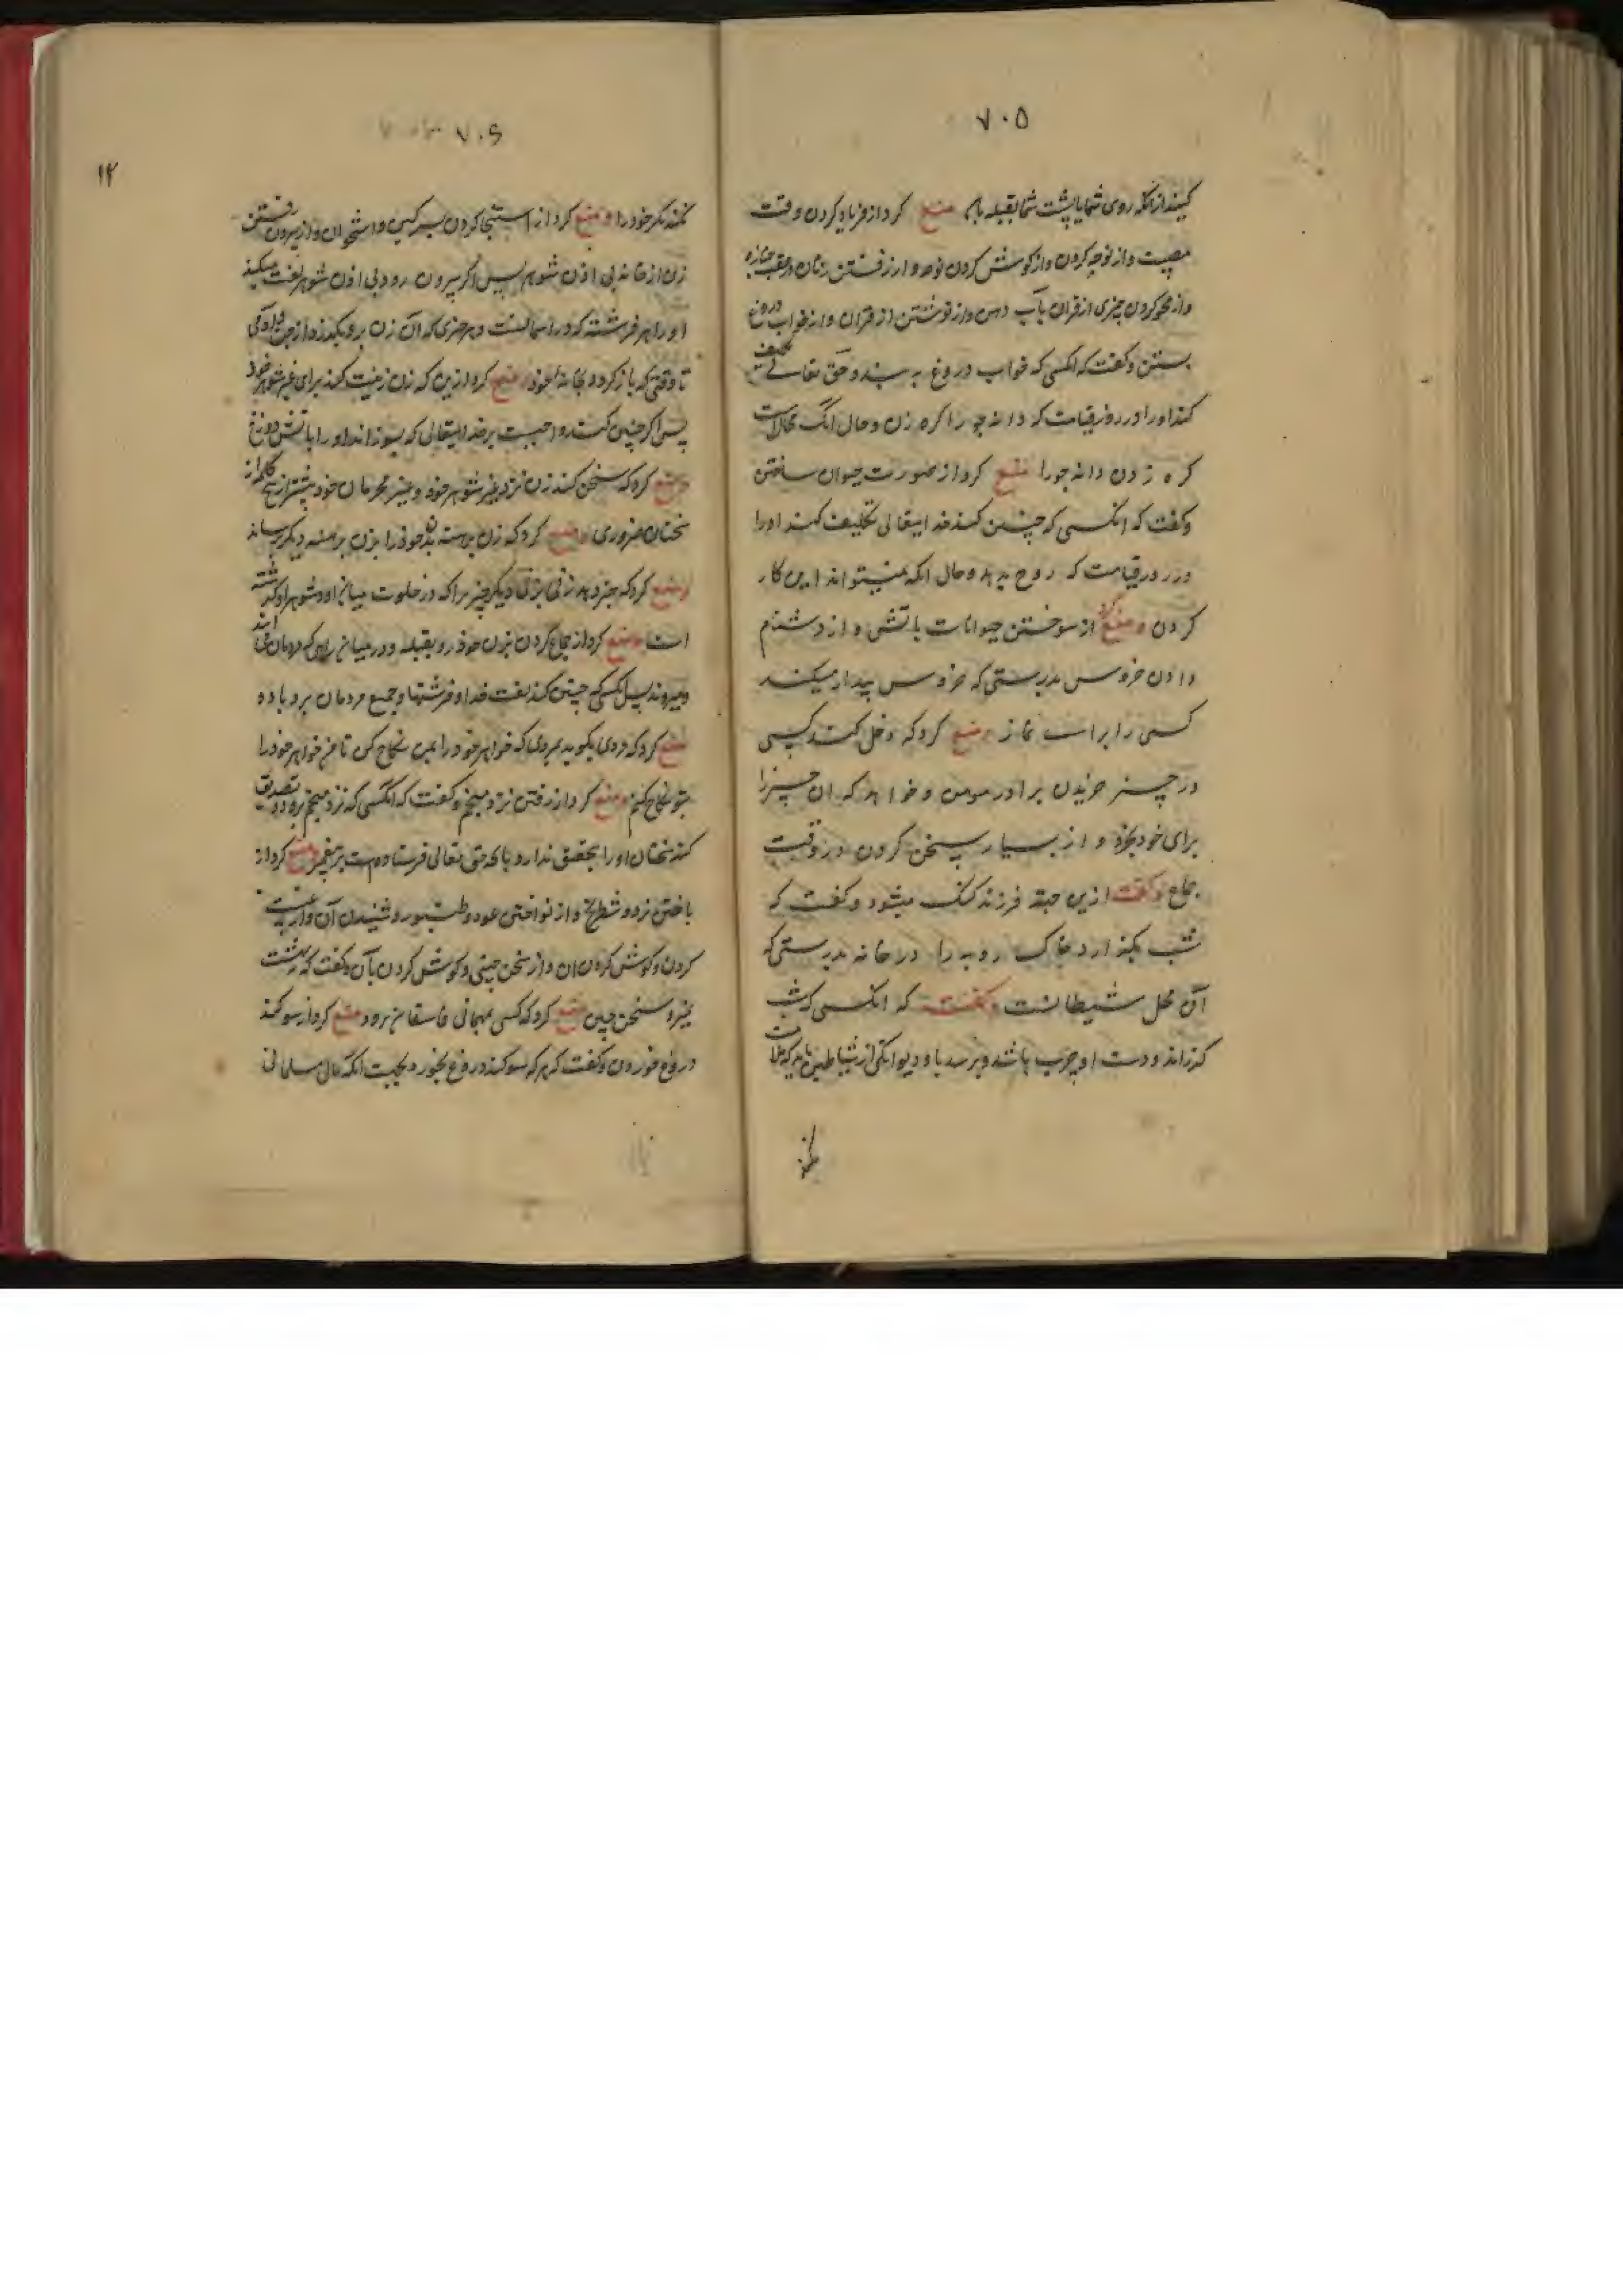 ۷۰۵
کنید از آنکه روی شما یا پشت شما بقبله باشد منع کرد از فریاد کردن وقت
مصیبت و از نوحه کردن و از کوش کردن نوحه و از رفتن زنان در عقب جنازه
و از محو کردن چیزی از قران بآب دهن و از نوشتن از قران و از خواب دروغ
بستن و کفت که انکسی که خواب دروغ به بندد حق تعالی تکلیف
کند او را در روز قیامت که دانه جو را کره زند و حال انک محالست
کره زدن دانه جو را منع کرد از صورت حیوان ساختن
و کفت که انکسی که چنین کند خدایتعالی تکلیف کند او را
در روز قیامت که روح بدهد و حال انکه نمیتواند این کار
کردن و منع از سوختن حیوانات باتش و از دشنام
دادن خروس بدرستی که خروس بیدار میکند
کسی را برای نماز و منع کرد که دخل کند کسی
در چیز خریدن برادر مومن و خواهد که ان چیز را
برای خود بخرد و از بسیار سخن کردن در وقت
جماع و کفت ازین جهة فرزند کنک میشود و کفت که
شب مکذارد خاک روبه را در خانه بدرستی که
آن محل شیطانست و کفت که انکسی که شب
کذراند و دست او چرب باشد و برسد باو دیوانکی از شیاطین باید که ملامت
نکند
۷۰۶
۱۴
نکند مکر خود را و منع کرد از استنجا کردن بسرکین و استخوان و از بیرون رفتن
زن از خانه بی اذن شوهر پس اکر بیرون رود بی اذن شوهر لعنت میکند
او را هر فرشته که در اسمانست و هر چیزی که آن زن برو بکذرد از جن و آدمی
تا وقتی که باز کردد بخانهٔ خود و منع کرد ازین که زن زینت کند برای غیر شوهر خود
پس اکر چنین کند واجبست بر خدایتعالی که بسوزاند او را باتش دوزخ
و منع کرد که سخن کند زن نزد غیر شوهر خود و غیر محرمان خود بیشتر از پنج کلمه از
سخنان ضروری و منع کرد که زن برهنه بدن خود را بزن برهنه دیکر برساند
و منع کرد که خبر دهد زنی بزنی دیکر چیزیرا که در خلوت میان او و شوهر او کذشته
است و منع کرد از جماع کردن بزن خود رو بقبله و در میان راهی که مردمان می‌ایند
و میروند پس انکسی که چنین کند لعنت خدا و فرشتها و جمیع مردمان برو باد و
منع کرد که مردی بکوید بمردی که خواهر خود را بمن نکاح کن تا من خواهر خود را
بتو نکاح کنم و منع کرد از رفتن نزد منجم و کفت که انکسی که نزد منجم برود و تصدیق
کند سخنان او را بتحقیق ندارد بانکه حق تعالی فرستاده است بر پیغمبر و منع کرد از
باختن نرد و شطرنج و از نواختن عود و طنبور و شنیدن آن و از غیبت
کردن و کوش کردن ان و از سخن چینی و کوش کردن بآن و کفت که بهشت
نمیرود سخن چین و منع کرد که کسی بمهمانی فاسقان برود و منع کرد از سوکند
دروغ خوردن و کفت که هر که سوکند دروغ بخورد بجهت انکه مال مسلمانی